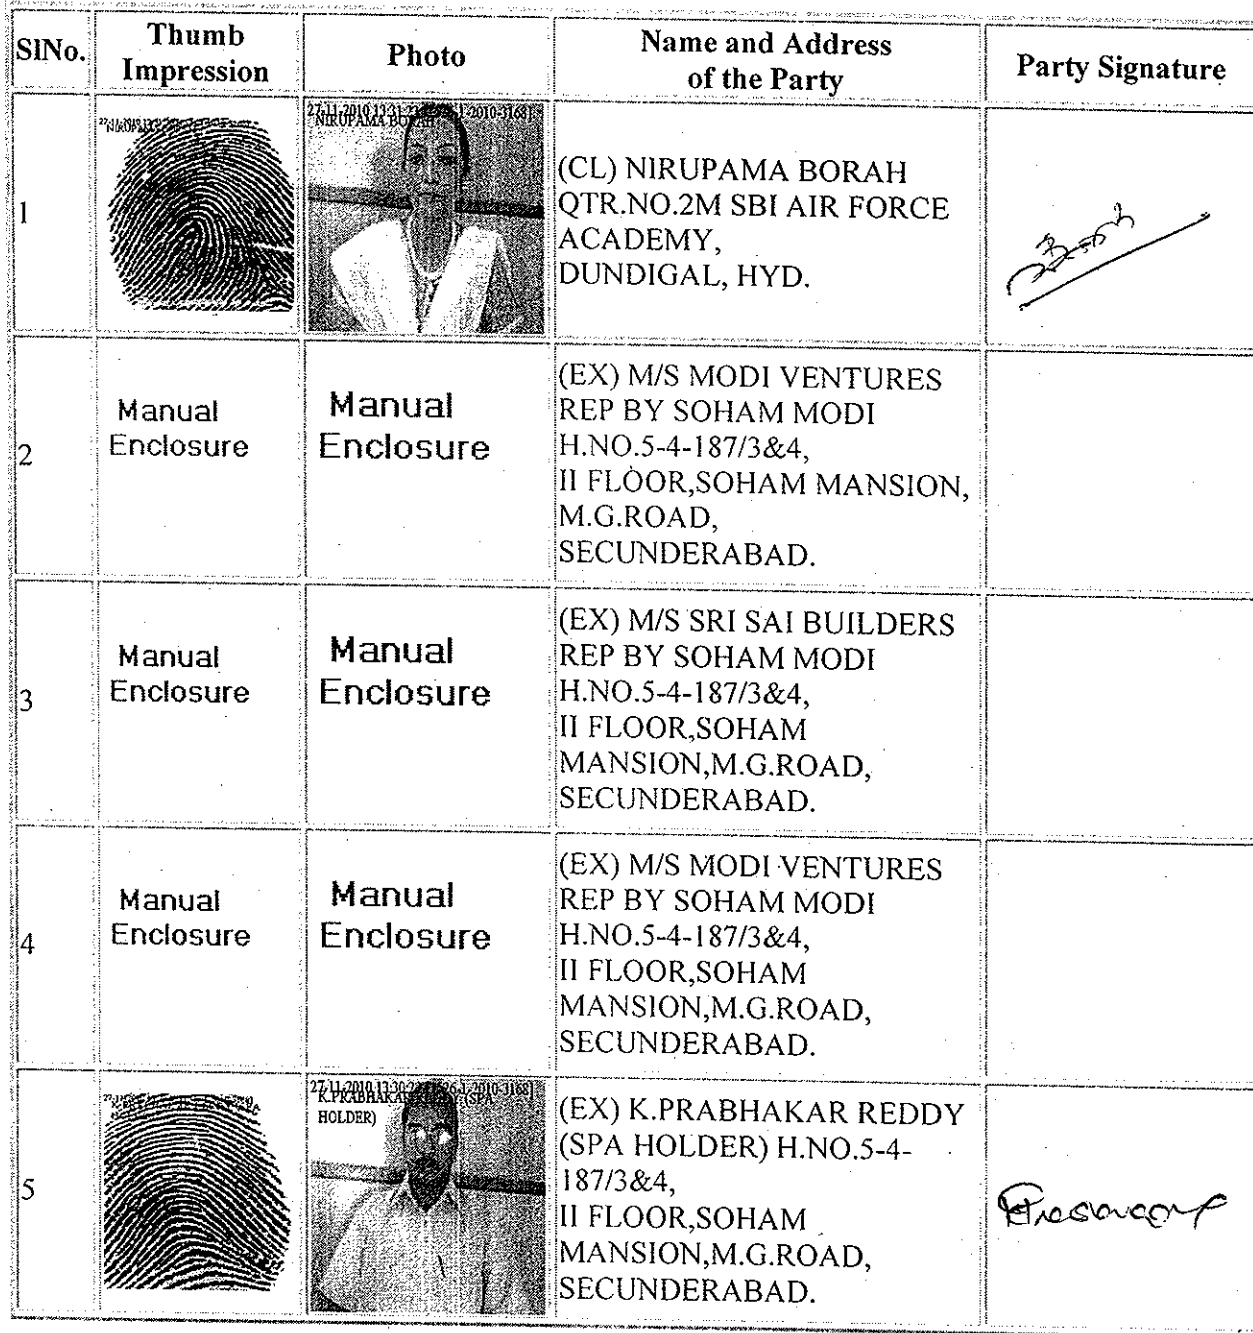 SlNo.
Thumb
Impression
Photo
Name and Address
of the Party
Party Signature
1
NIRUPAMA BORAH
(CL) NIRUPAMA BORAH
QTR.NO.2M SBI AIR FORCE
ACADEMY,
DUNDIGAL, HYD.
2
Manual
Enclosure
Manual
Enclosure
(EX) M/S MODI VENTURES
REP BY SOHAM MODI
H.NO.5-4-187/3&4,
II FLOOR,SOHAM MANSION,
M.G.ROAD,
SECUNDERABAD.
3
Manual
Enclosure
Manual
Enclosure
(EX) M/S SRI SAI BUILDERS
REP BY SOHAM MODI
H.NO.5-4-187/3&4,
II FLOOR,SOHAM
MANSION,M.G.ROAD,
SECUNDERABAD.
4
Manual
Enclosure
Manual
Enclosure
(EX) M/S MODI VENTURES
REP BY SOHAM MODI
H.NO.5-4-187/3&4,
II FLOOR,SOHAM
MANSION,M.G.ROAD,
SECUNDERABAD.
5
K.PRABHAKAR REDDY (SPA
HOLDER)
(EX) K.PRABHAKAR REDDY
(SPA HOLDER) H.NO.5-4-
187/3&4,
II FLOOR,SOHAM
MANSION,M.G.ROAD,
SECUNDERABAD.